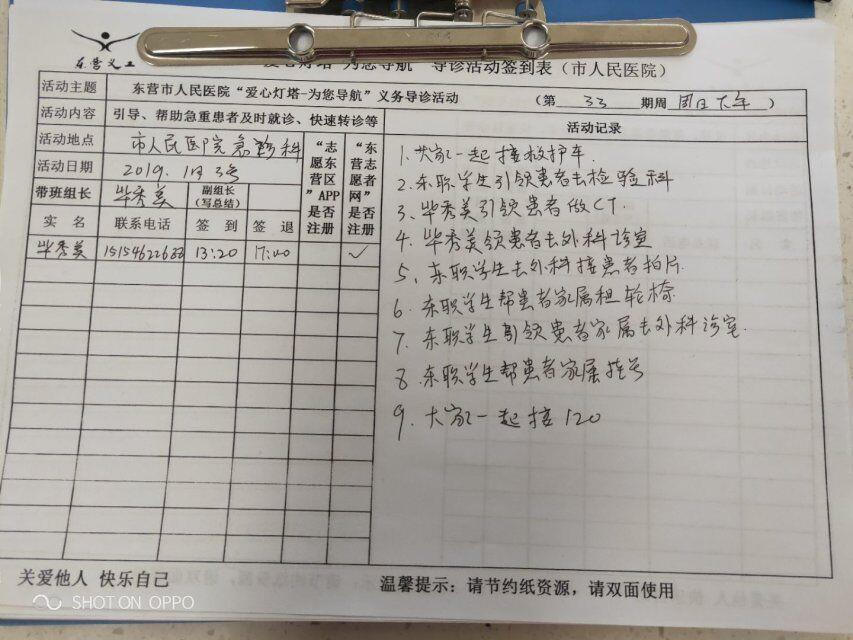 东营义工
爱心灯塔 为您导航 导诊活动签到表（市人民医院）
活动主题 东营市人民医院“爱心灯塔-为您导航”义务导诊活动 （第 33 期周 周日下午 ）
活动内容 引导、帮助急重患者及时就诊、快速转诊等
活动地点 市人民医院急诊科
活动日期 2019.
带班组长 毕秀美 副组长（写总结）
“志愿东营区”APP是否注册
“东营志愿者网”是否注册
实名 联系电话 签到 签退
毕秀美 13:20 17:00 ✓
活动记录
1. 大家一起接救护车.
2. 东职学生引领患者去检验科
3. 毕秀美引领患者做CT.
4. 毕秀美领患者去外科诊室
5、东职学生去外科接患者拍片.
6. 东职学生帮患者家属租轮椅
7. 东职学生引领患者家属去外科诊室.
8. 东职学生帮患者家属挂号
9. 大家一起接120
关爱他人 快乐自己
温馨提示：请节约纸资源，请双面使用
SHOT ON OPPO